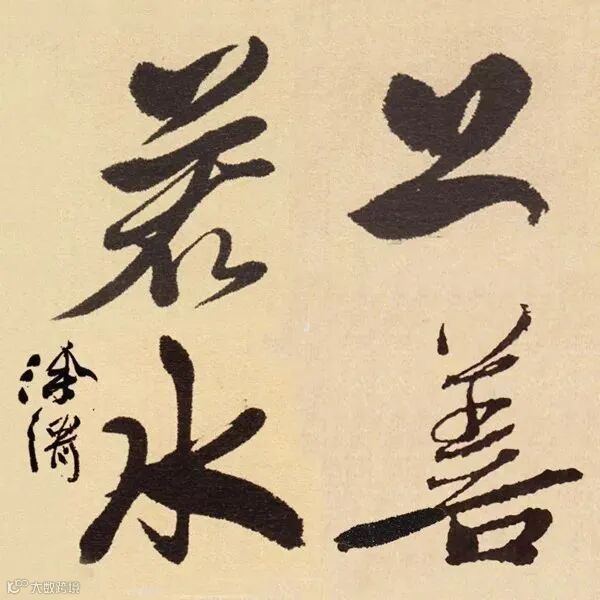 上善
若水
大数跨境